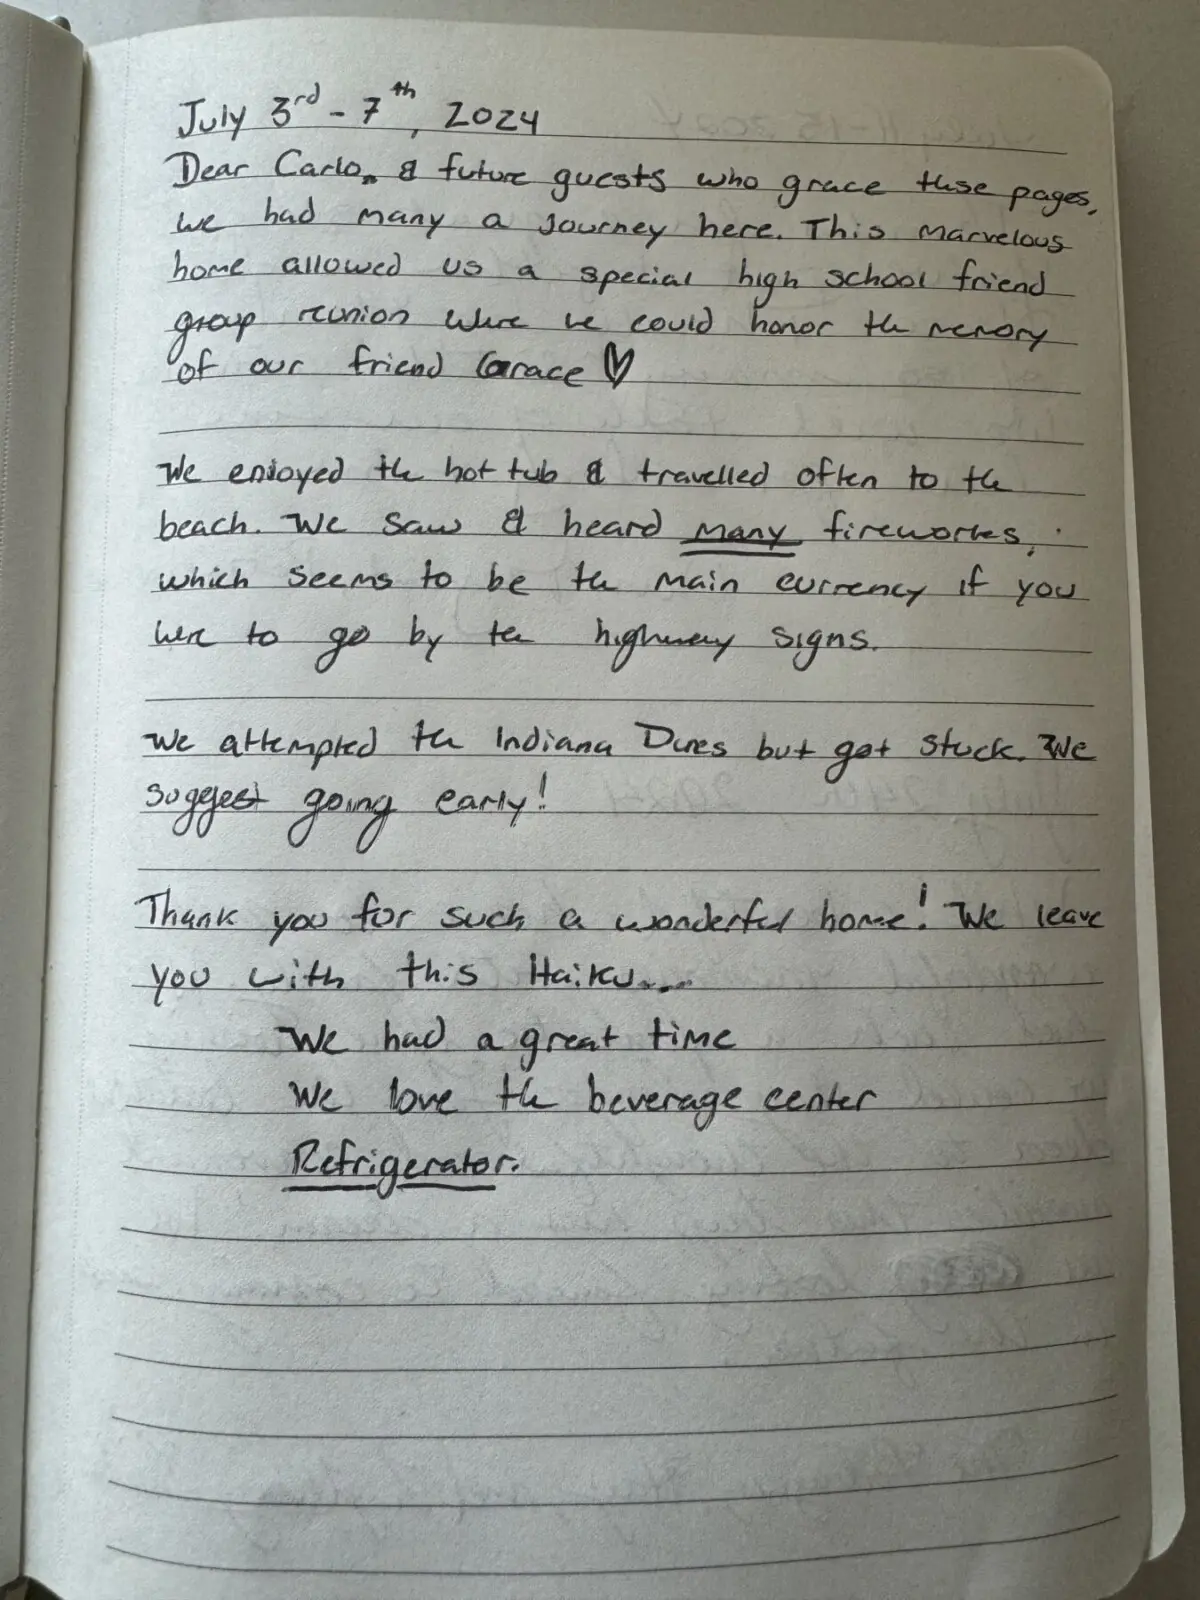 July 3rd - 7th, 2024
Dear Carlo, & future guests who grace these pages,
we had many a journey here. This marvelous
home allowed us a special high school friend
group reunion where we could honor the memory
of our friend Grace ♡
We enjoyed the hot tub & travelled often to the
beach. We saw & heard many fireworks,
which seems to be the main currency if you
were to go by the highway signs.
We attempted the Indiana Dunes but got stuck. We
suggest going early!
Thank you for such a wonderful home! We leave
you with this Haiku....
We had a great time
We love the beverage center
Refrigerator.